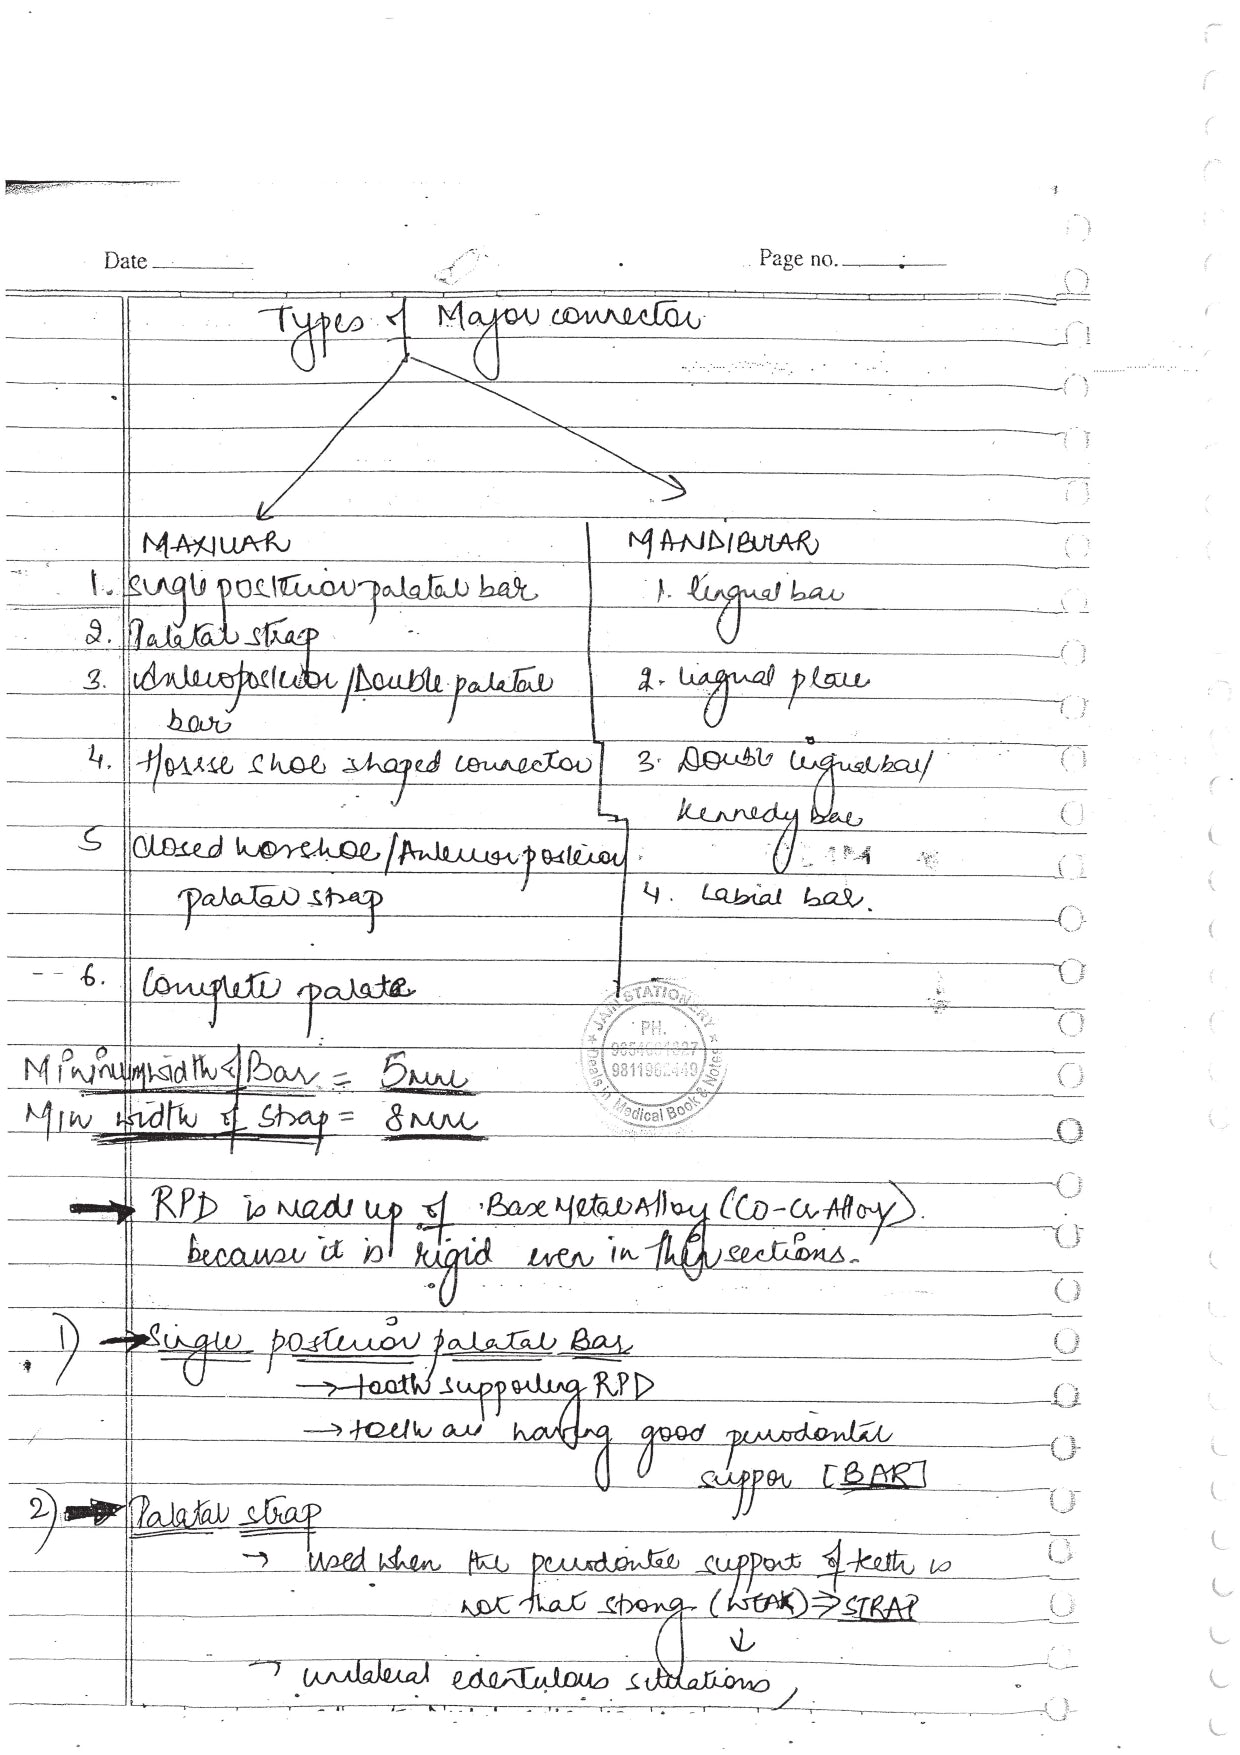 Date
Page no.
Types of Major connector
MAXILLAR
1. Single posterior palatal bar
2. Palatal strap
3. Anteroposterior/Double palatal
bar
4. Horsse shoe shaped connector
5 closed horshoe/Anterior posterior
palatal strap
6. Complete palate
MANDIBULAR
1. lingual bar
2. lingual plate
3. Double lingual bar/
Kennedy bar
4. Labial bar.
JAIN STATIONERY
PH.
9811962449
Deals in Medical Book & Notes
Minimum width of Bar = 5mm
Min width of strap = 8mm
→ RPD is made up of Base Metal Alloy (CO-Cr Alloy).
because it is rigid even in thin sections.
1) → Single posterior palatal Bar
→ teeth supporting RPD
→ teeth are having good periodontal
suppor [BAR]
2) → Palatal strap
→ used when the periodontal support of teeth is
not that strong (WEAK) ⇒ STRAP
↓
→ unilateral edentulous situations,